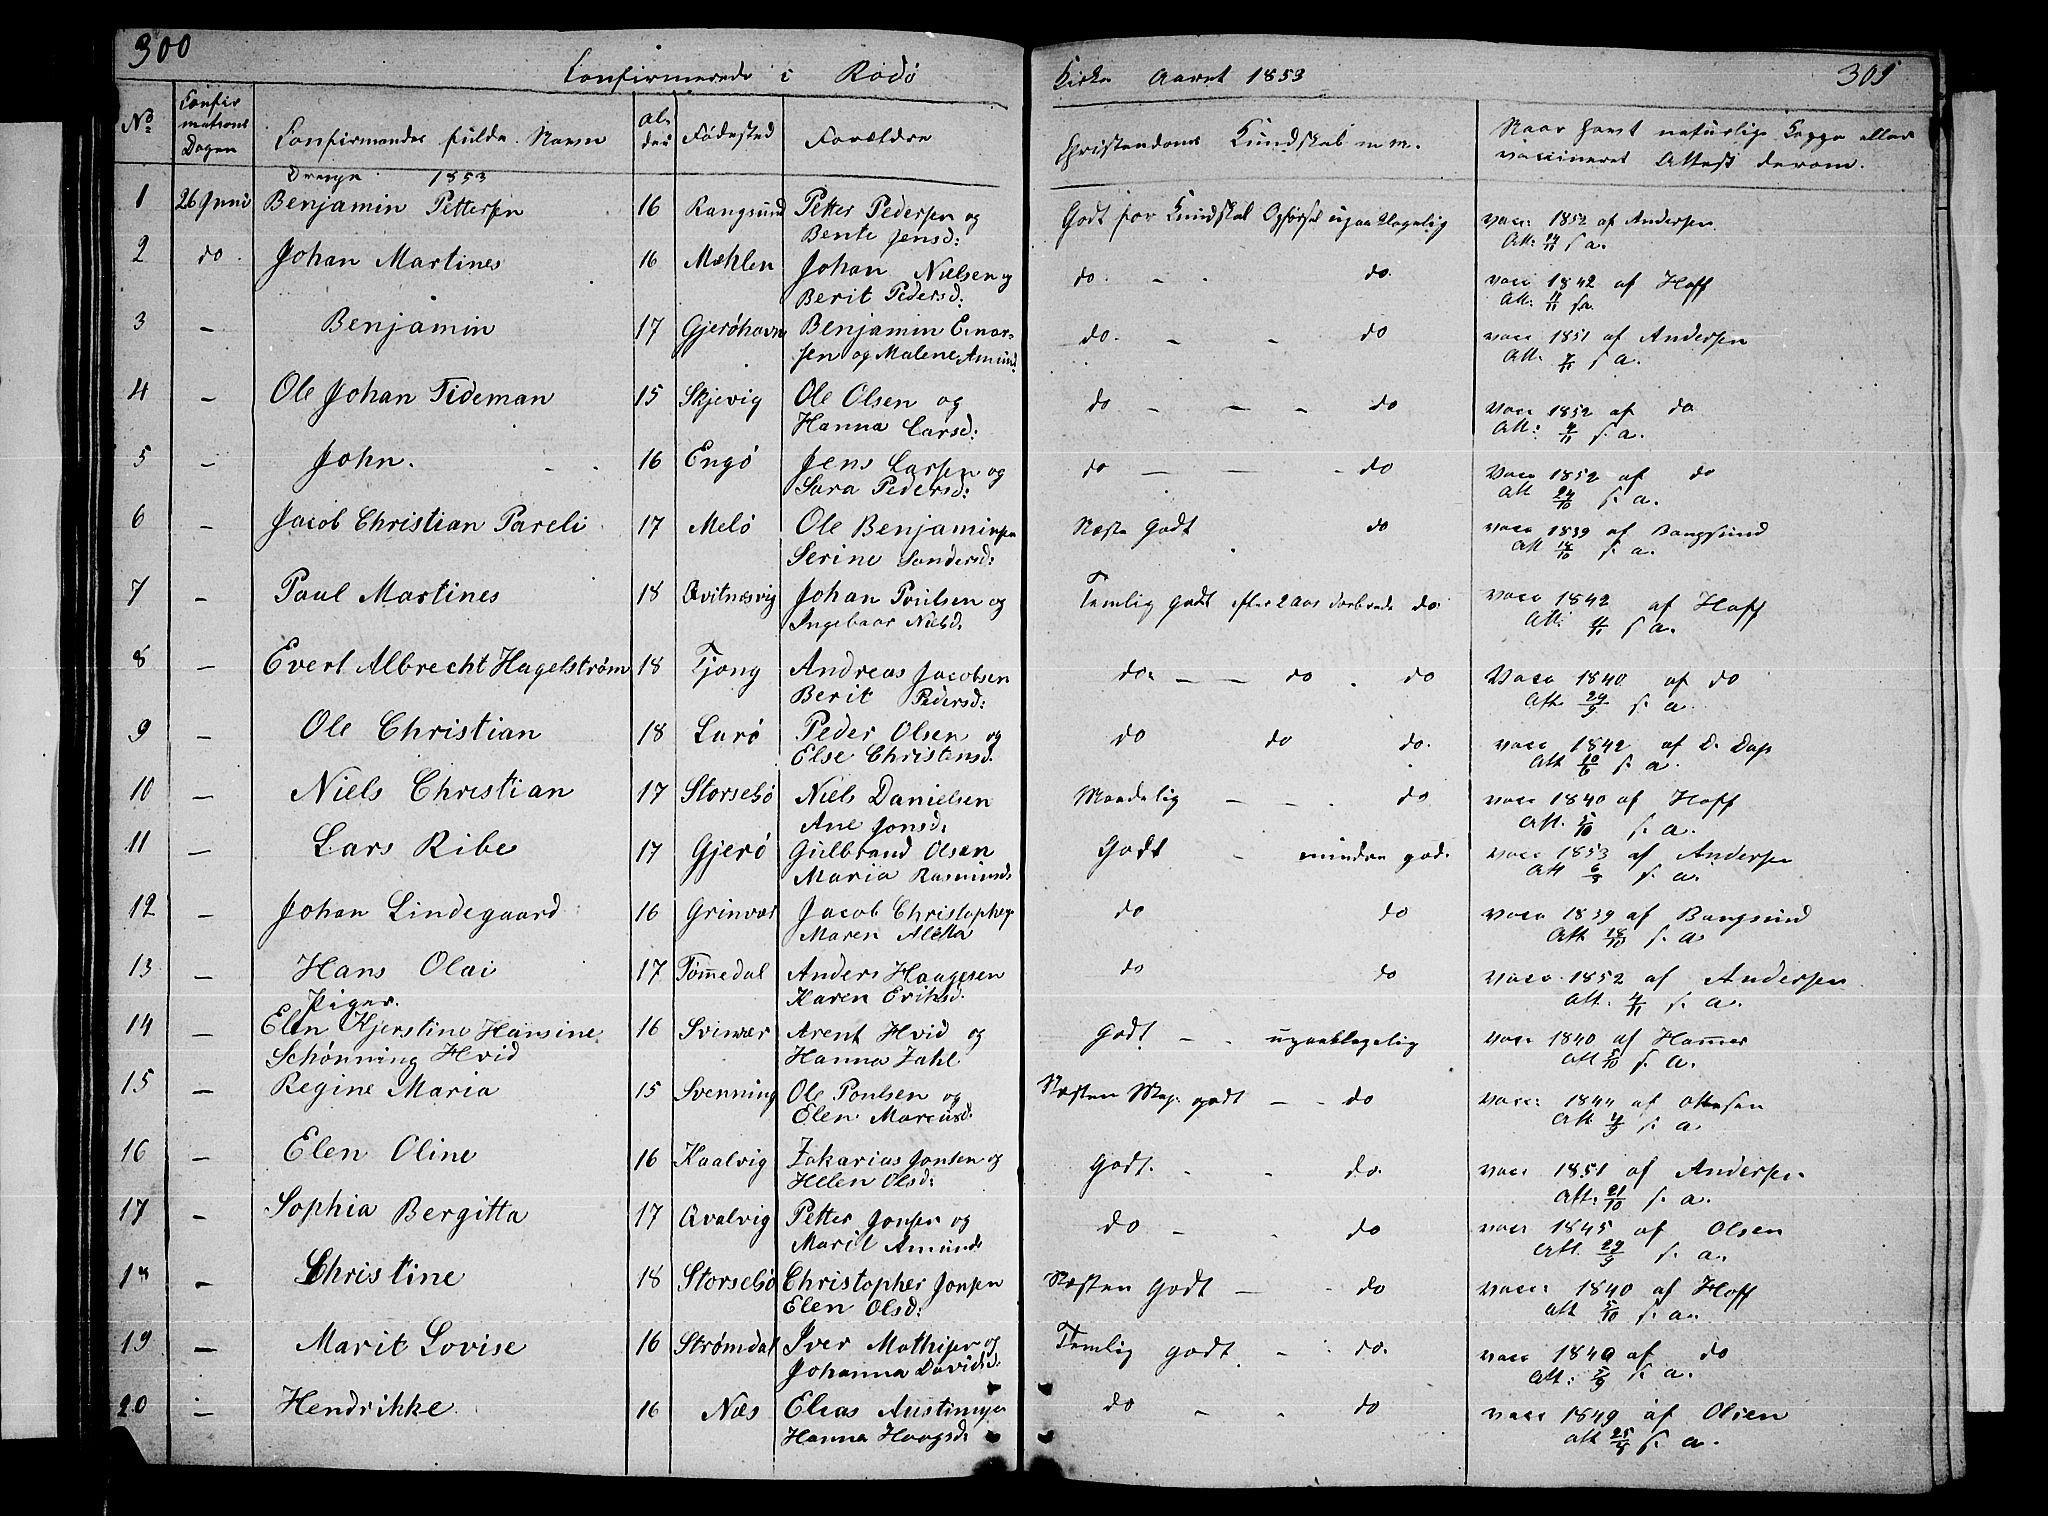 300
Confirmerede i Rodø
Kirke Aaret 1853
301
No
Confirmations Dagen
Confirmandes fulde Navn
alder
Fødested
Forældre
Christendoms Kundskab m. m.
Naar havt naturlige Kopper eller
vaccineret Attest derom.
Drenge 1853
1 26 Juni Benjamin Pettersen 16 Rangsund Petter Pedersen og
Bente Jensd:
Godt for Kundskab Opførsel upaaklagelig
vacc: 1852 af Andersen
Att: s. a.
2 do. Johan Martines 16 Mæhlen Johan Nielsen og
Berit Pedersd:
do. - do.
vacc 1842 af Hoff
Att: 11/11 s. a.
3 - Benjamin 17 Gjerøhavn Benjamin Einar-
sen og Malene Amund
do. - - do
vacc 1851 af Andersen
Att: s. a.
4 - Ole Johan Tideman 15 Skjevig Ole Olsen og
Hanna Larsd:
do - - - do
vacc 1852 af do
Att: s. a.
5 - John. 16 Engø Jens Larsen og
Sara Pedersd:
do - - - do
vacc 1852 af do
Att 24/10 s. a.
6 - Jacob Christian Pareli 17 Melø Ole Benjaminsen
Serine Sandersd:
Næsten Godt do
vacc 1839 af Bangsund
Att 18/10 s. a.
7 - Paul Martines 18 Qvitnæsvig Johan Poulsen og
Ingebaar Nielsd:
Temlig godt efter 2 Aars do.
vacc 1842 af Hoff
Att: s. a.
8 - Evert Albrecht Hagelstrøm 18 Tjong Andreas Jacobsen
Berit Pedersd:
do. - - do . do
Vacc 1840 af do
Att 29/9 s. a.
9 - Ole Christian 18 Lurø Peder Olsen og
Else Christensd.
do do do.
vacc 1842 af D. Dass
Att 10/6 s. a.
10 - Niels Christian 17 Storselsø Niels Danielsen
Ane Jonsd:
Maadelig - - . do
vacc 1840 af Hoff
Att. 5/10 s. a.
11 - Lars Ribe 17 Gjerø Gulbrand Olsen
Maria Rasmusd:
Godt - mindre god.
vacc 1853 af Andersen
Att s. a.
12 - Johan Lindegaard 16 Grinvær Jacob Christophers
Maren Aletta
do do
vacc 1839 af Bangsund
Att 18/10 s. a
13 - Hans Olai 17 Tømedal Anders Haagesen
Karen Eriksd.
do do
vacc 1852 af Andersen
Att. 4/11 s. a.
Piger.
14 - Elen Kjerstine Hansine 16 Svinvær Arent Hvid og
Schønning Hvid Hanna Zahl
Godt. - - upaaklagelig
vacc 1840 af Hamer
Att 5/10 s. a.
15 - Regine Maria 15 Svenning Ole Poulsen og
Elen Marcusd:
Næsten Meg. godt - - do
vacc: 1844 af Ottesen
Att s. a.
16 - Elen Oline 16 Kaalvig Zakarias Jonsen og
Helen Olsd:
Godt. - - do.
vacc 1851 af Andersen
Att: 21/10 s. a.
17 - Sophia Bergitta 17 Qvalvig Petter Jonsen og
Marit Amunds
do - . do
vacc 1845 af Olsen
Att. 29/9 s. a.
18 - Christine 18 Storselsø Christopher Jonsen
Elen Olsd:
Næsten Godt - - do
vacc: 1840 af Hoff
Att 5/10 s. a.
19 - Marit Lovise 16 Strømdal Iver Mathisen og
Johanna Davidsd:
Temlig godt. - . do.
vacc 1840 af do
Att: s. a.
20 - Hendrikke 16 Næs Elias Austinsen
Hanna Haagsd:
do - . do
vacc 1849 af Olsen
Att s. a.